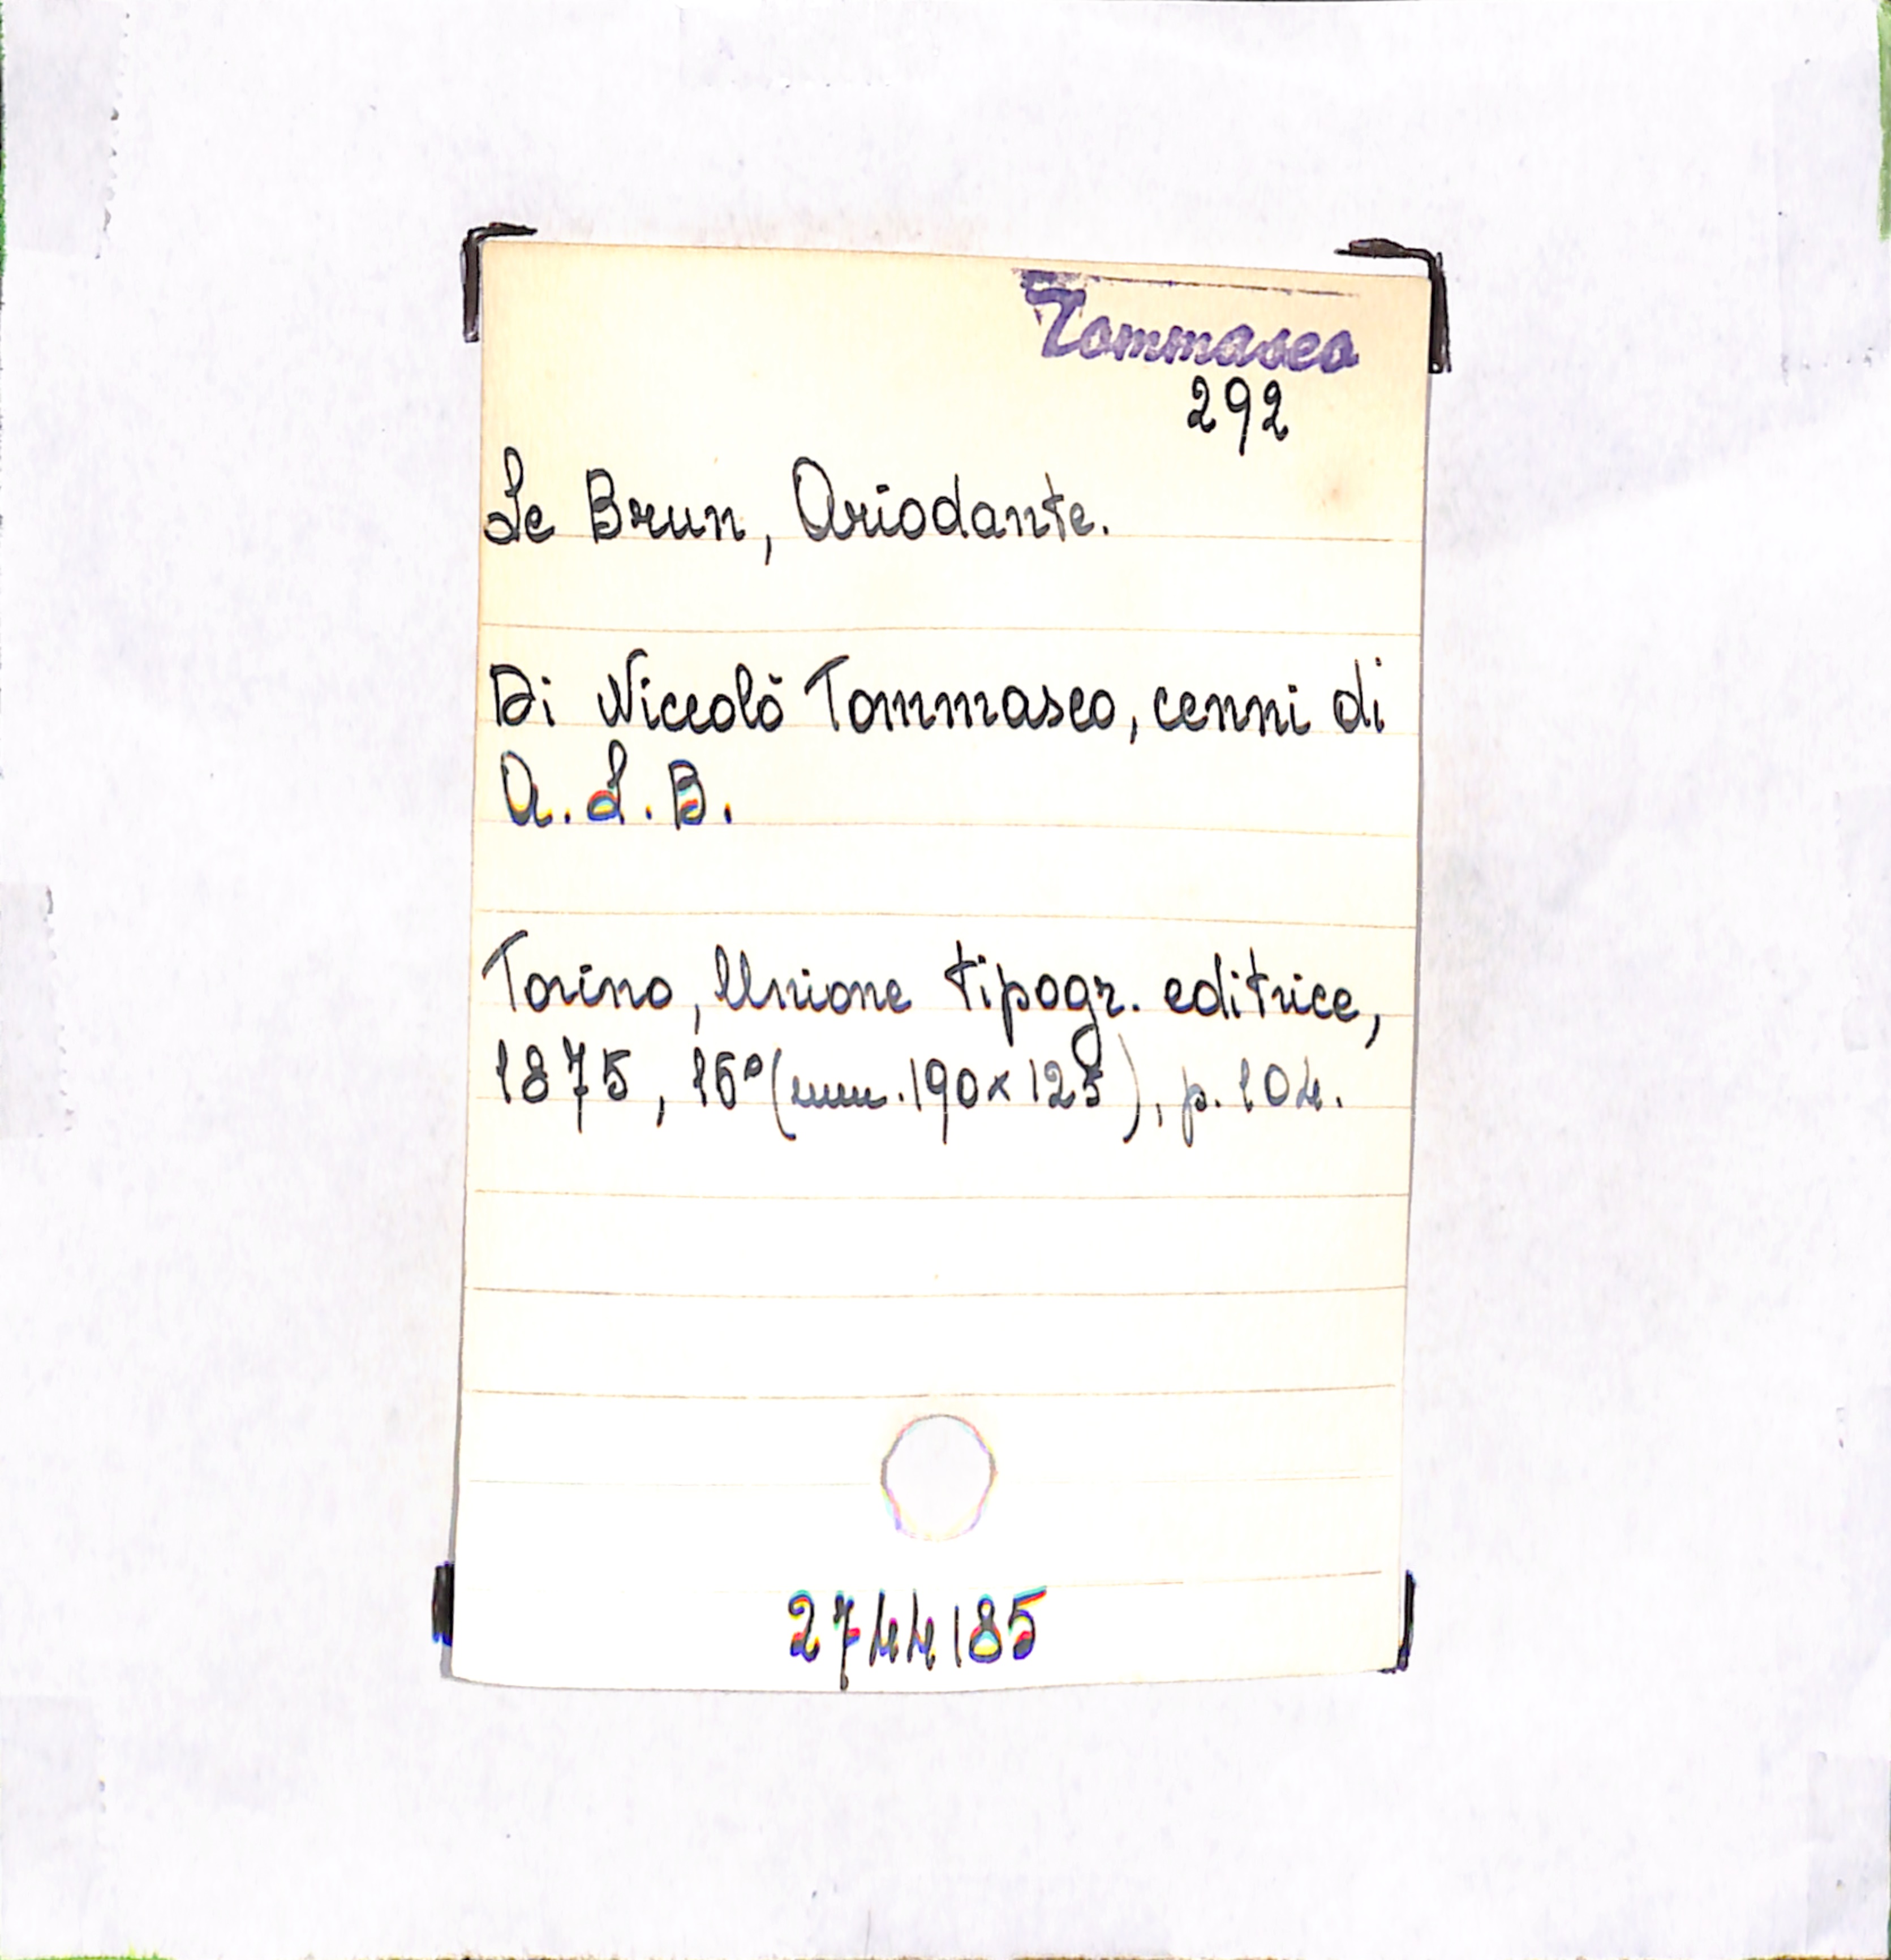 Tommaseo
292
Le Brun, Ariodante.
Di Niccolò Tommaseo, cenni di
A. L. B.
Torino, Unione tipogr. editrice,
1875, 16° (mm. 190x125), p. 104.
2744185